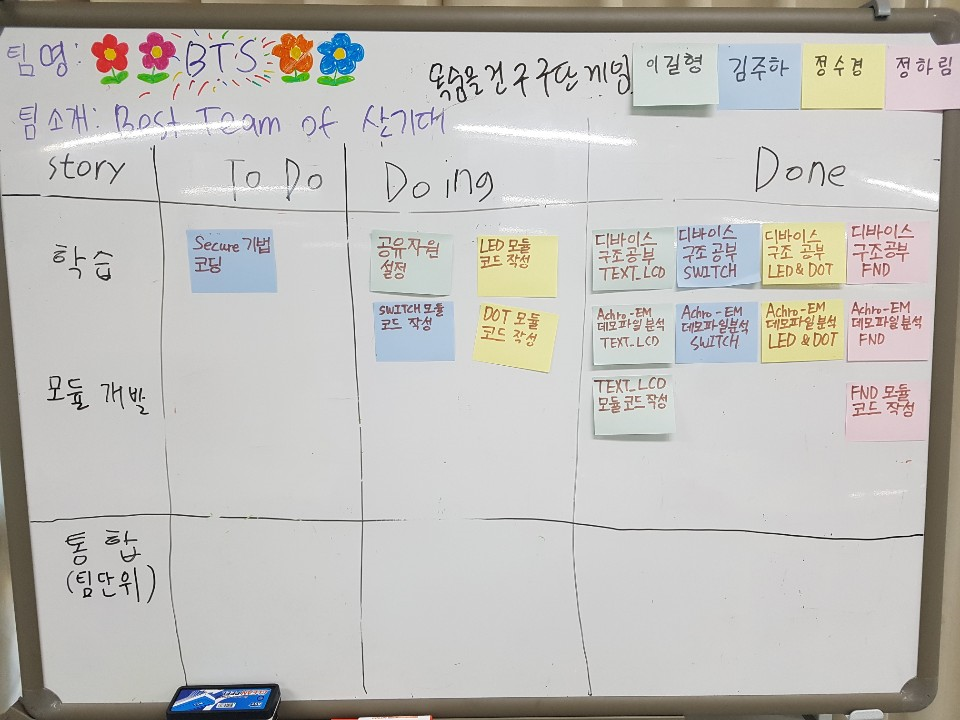 팀명: BTS
목숨을 건 구구단 게임
이길형
김주하
정수경
정하림
팀소개: Best Team of 산기대
Story
To Do
Doing
Done
학습
Secure 기법
코딩
공유자원
설정
LED 모듈
코드 작성
디바이스
구조공부
TEXT_LCD
디바이스
구조공부
SWITCH
디바이스
구조 공부
LED & DOT
디바이스
구조공부
FND
SWITCH 모듈
코드 작성
DOT 모듈
코드 작성
Achro-EM
데모파일 분석
TEXT_LCD
Achro-EM
데모파일분석
SWITCH
Achro-EM
데모파일 분석
LED & DOT
Achro-EM
데모파일분석
FND
모듈 개발
TEXT_LCD
모듈 코드 작성
FND 모듈
코드 작성
통합
(팀단위)